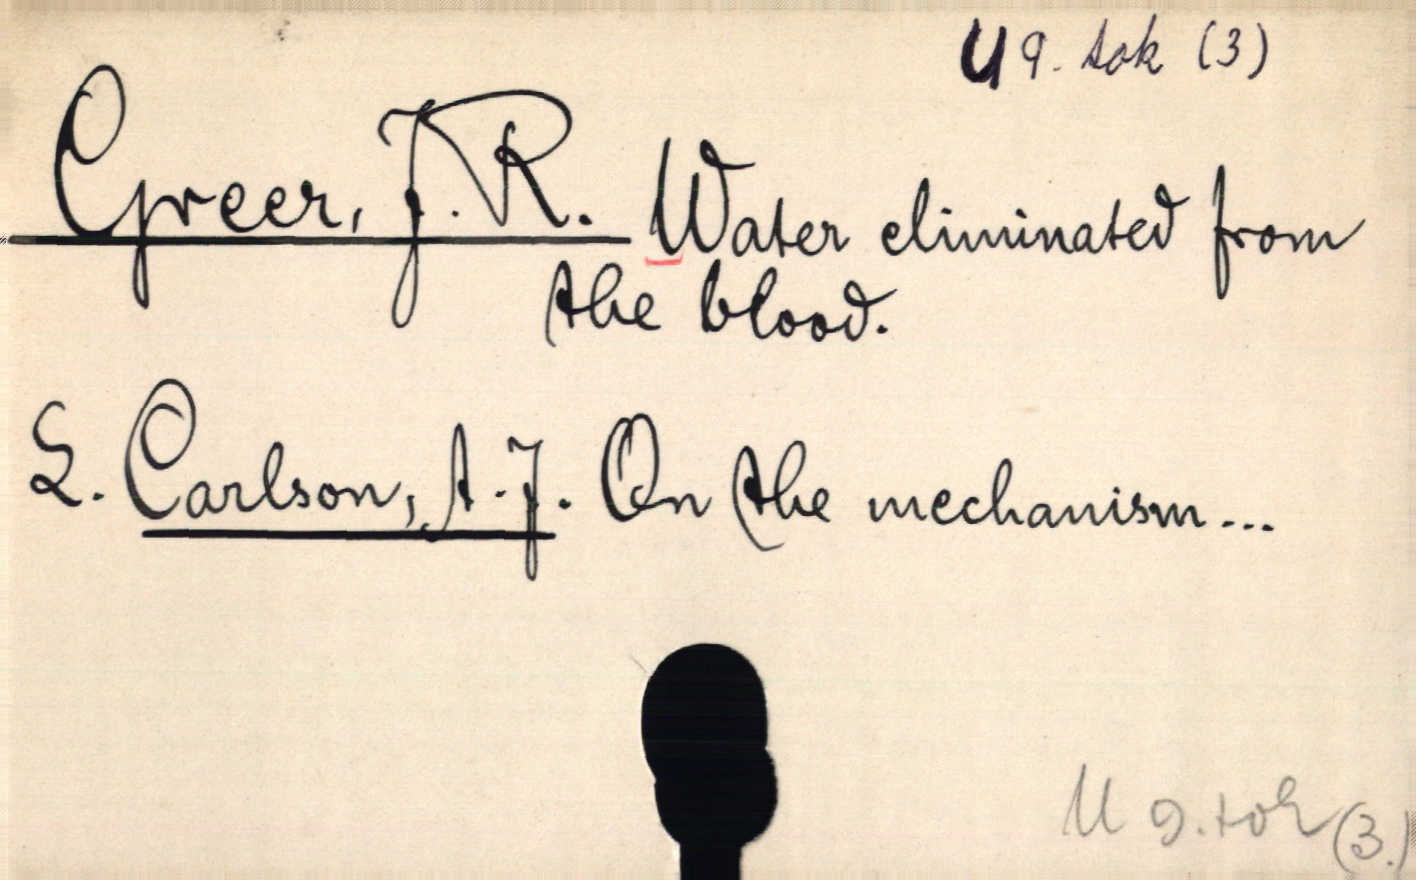 U 9. tok (3)
Greer, J. R. Water eliminated from
the blood.
L. Carlson, A. J. On the mechanism...
U 9. tok (3.)